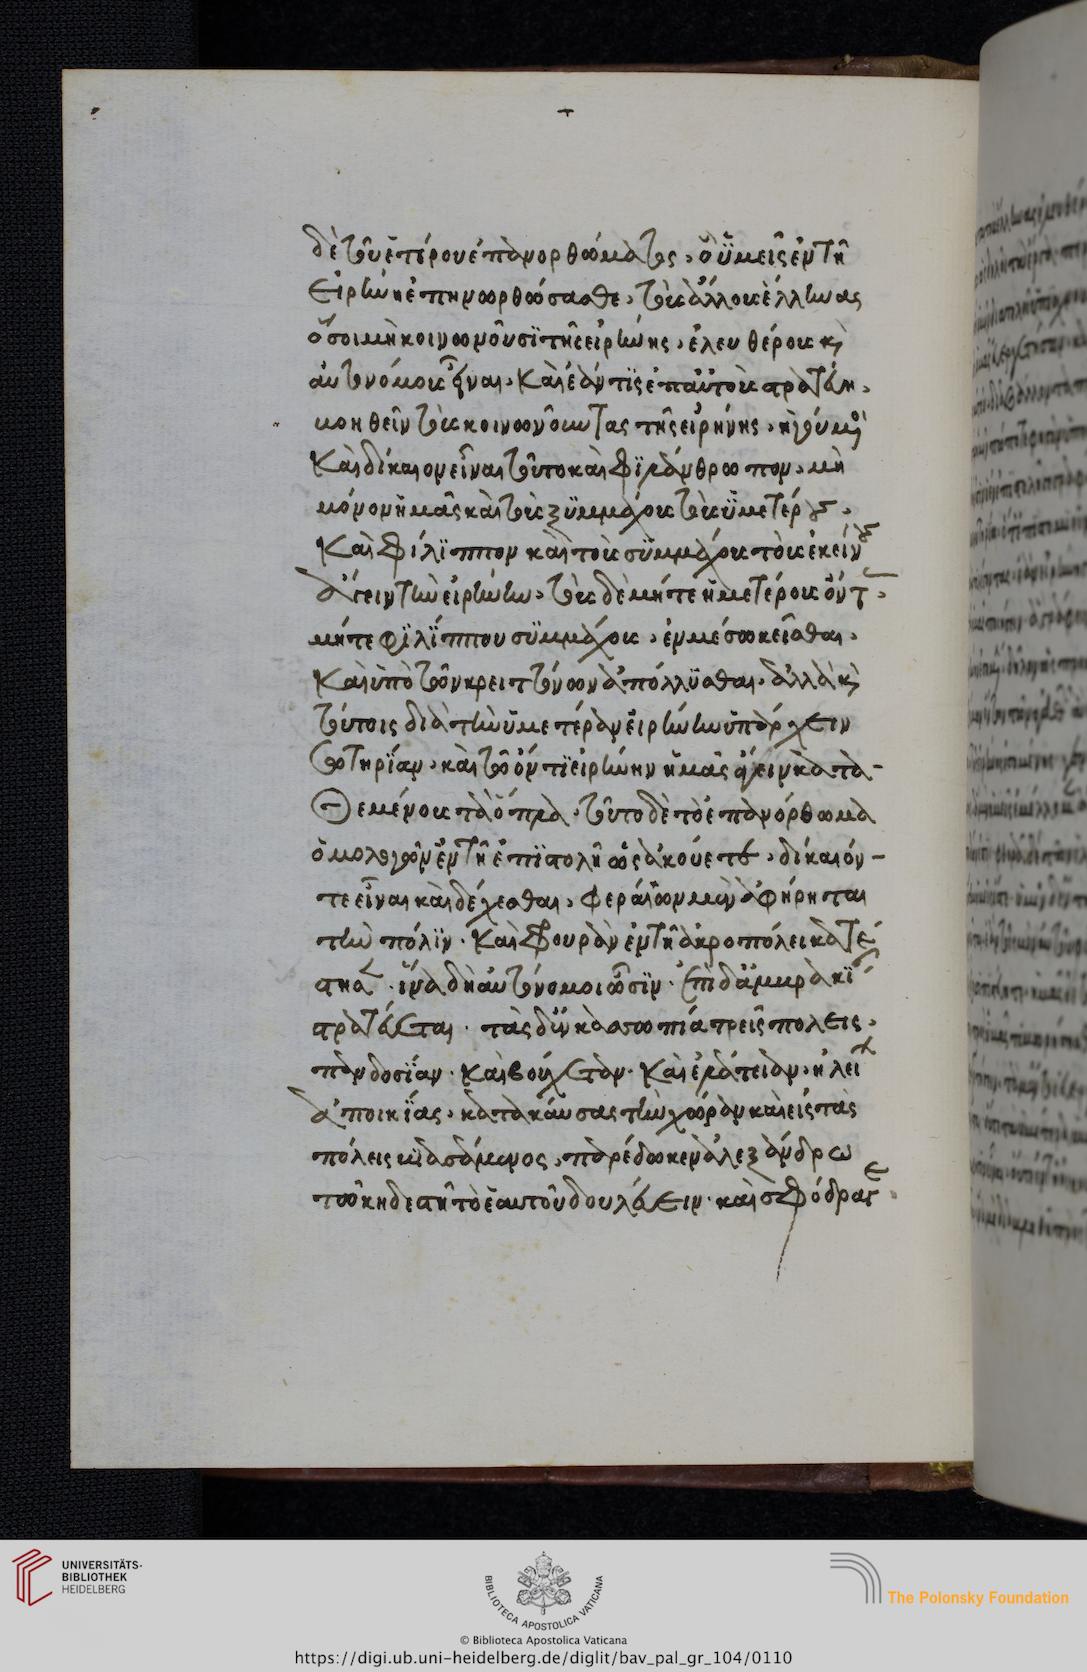 δὲ τοῦ ἑτέρου ἐπανορθώματος, ὃ ὑμεῖς ἐν τῆ
εἰρήνη ἐπηνωρθώσασθε, τοὺς ἄλλους ἕλληνας
ὅσοι μὴ κοινωνοῦσι τῆς εἰρήνης, ἐλευθέρους καὶ
αὐτονόμους εἶναι, καὶ ἐάν τις ἐπ αὐτοὺς στρατεύη,
βοηθεῖν τοὺς κοινωνοῦντας τῆς εἰρήνης, ἡγούμενοι
καὶ δίκαιον εἶναι τοῦτο καὶ φιλάνθρωπον, μὴ
μόνον ἡμᾶς καὶ τοὺς ξυμμάχους τοὺς ὑμετέρους,
καὶ φίλιππον καὶ τοὺς συμμάχους τοὺς ἐκείνου
ἄγειν τὴν εἰρήνην, τοὺς δὲ μήτε ἡμετέρους ὄντας,
μήτε φιλίππου συμμάχους, ἐν μέσω κεῖσθαι,
καὶ ὑπὸ τῶν κρειττόνων ἀπόλλυσθαι, ἀλλὰ καὶ
τούτοις διὰ τὴν ὑμετέραν εἰρήνην ὑπάρχειν
σωτηρίαν, καὶ τῶ ὄντι εἰρήνην ἡμᾶς ἄγειν κατα-
θεμένους τὰ ὅπλα. τοῦτο δὲ τὸ ἐπανόρθωμα
ὁμολογῶν ἐν τῆ ἐπιστολῆ ὡς ἀκούετε, δίκαιόν-
τε εἶναι καὶ δέχεσθαι, φεραίων μὲν ἀφήρηται
τὴν πόλιν. καὶ φρουρὰν ἐν τῆ ἀκροπόλει κατέ
στησεν. ἵνα δὴ αὐτόνομοι ὦσιν. ἐπὶ δ ἀμπρακίαν
στρατεύεται. τὰς δ ἐν κασσωπία τρεῖς πόλεις,
πανδοσίαν. καὶ βούχεταν. καὶ ἐλάτειαν, ἠλείων
ἀποικίας, κατακαύσας τὴν χώραν καὶ εἰς τὰς
πόλεις βιασάμενος, παρέδωκεν ἀλεξάνδρω
τῶ κηδεστῆ τῶ ἑαυτοῦ δουλεύειν. καὶ σφόδρα γε
UNIVERSITÄTS-
BIBLIOTHEK
HEIDELBERG
BIBLIOTECA APOSTOLICA VATICANA
The Polonsky Foundation
© Biblioteca Apostolica Vaticana
https://digi.ub.uni-heidelberg.de/diglit/bav_pal_gr_104/0110